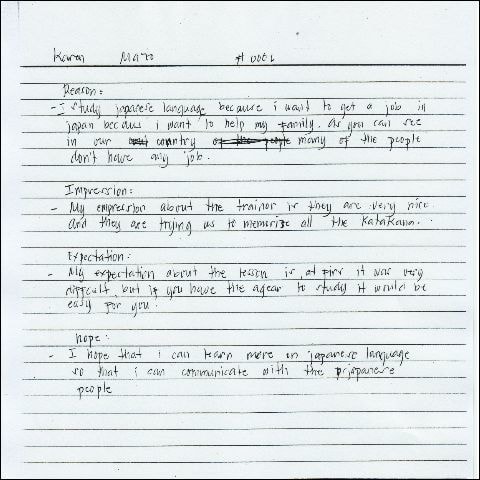 Karen Mato # 0001
Reason:
- I study japanese language because i want to get a job in
japan becaus i want to help my family. As you can see
in our country of the people many of the people
don't have any job.
Impression:
- My empression about the trainor is they are very nice
and they are trying us to memorize all the katakana.
Expectation:
- My expectation about the lesson is at firs it was very
difficult, but if you have the agear to study it would be
easy for you.
hope:
- I hope that i can learn more on japanese language
so that i can communicate with the japanese
people